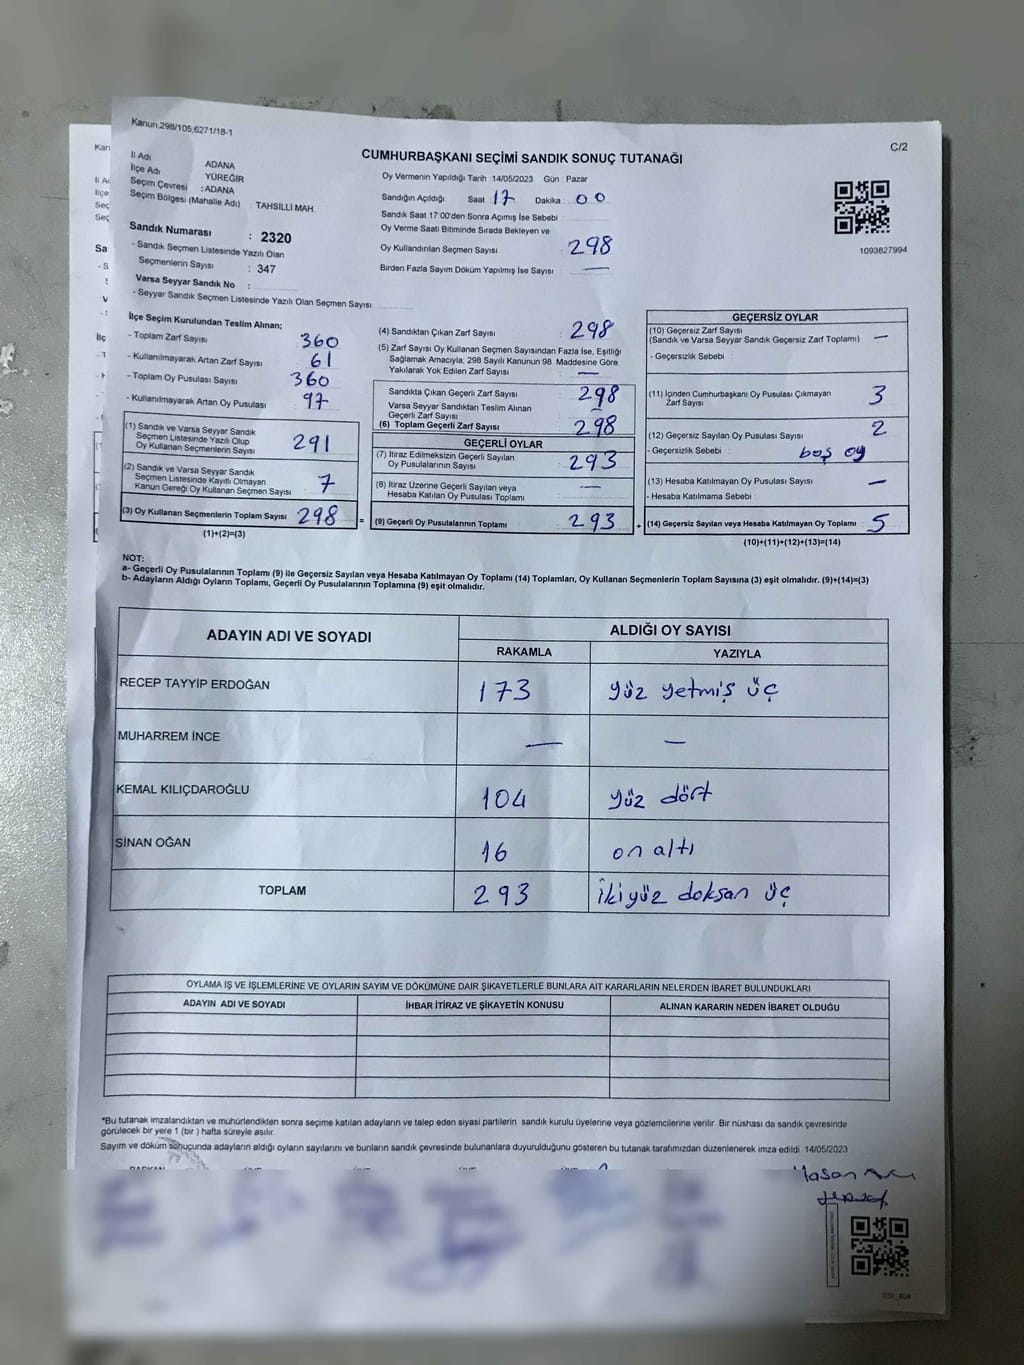 Kanun.298/105,6271/18-1
C/2
CUMHURBAŞKANI SEÇİMİ SANDIK SONUÇ TUTANAĞI
İl Adı ADANA
İlçe Adı YÜREĞİR
Seçim Çevresi : ADANA
Seçim Bölgesi (Mahalle Adı) TAHSİLLİ MAH.
Sandık Numarası : 2320
- Sandık Seçmen Listesinde Yazılı Olan
Seçmenlerin Sayısı : 347
Varsa Seyyar Sandık No :
- Seyyar Sandık Seçmen Listesinde Yazılı Olan Seçmen Sayısı
Oy Vermenin Yapıldığı Tarih :14/05/2023 Gün : Pazar
Sandığın Açıldığı Saat 17 Dakika : 00
Sandık Saat 17:00'den Sonra Açımış İse Sebebi
Oy Verme Saati Bitiminde Sırada Bekleyen ve
Oy Kullandırılan Seçmen Sayısı 298
Birden Fazla Sayım Döküm Yapılmış İse Sayısı —
1093827994
İlçe Seçim Kurulundan Teslim Alınan;
- Toplam Zarf Sayısı 360
- Kullanılmayarak Artan Zarf Sayısı 61
- Toplam Oy Pusulası Sayısı 360
- Kullanılmayarak Artan Oy Pusulası 97
(1) Sandık ve Varsa Seyyar Sandık
Seçmen Listesinde Yazılı Olup
Oy Kullanan Seçmenlerin Sayısı 291
(2) Sandık ve Varsa Seyyar Sandık
Seçmen Listesinde Kayıtlı Olmayan
Kanun Gereği Oy Kullanan Seçmen Sayısı 7
(3) Oy Kullanan Seçmenlerin Toplam Sayısı 298
(1)+(2)=(3)
(4) Sandıktan Çıkan Zarf Sayısı 298
(5) Zarf Sayısı Oy Kullanan Seçmen Sayısından Fazla İse, Eşitliği
Sağlamak Amacıyla, 298 Sayılı Kanunun 98. Maddesine Göre
Yakılarak Yok Edilen Zarf Sayısı —
Sandıkta Çıkan Geçerli Zarf Sayısı 298
Varsa Seyyar Sandıktan Teslim Alınan
Geçerli Zarf Sayısı —
(6) Toplam Geçerli Zarf Sayısı 298
GEÇERLİ OYLAR
(7) İtiraz Edilmeksizin Geçerli Sayılan
Oy Pusulalarının Sayısı 293
(8) İtiraz Üzerine Geçerli Sayılan veya
Hesaba Katılan Oy Pusulası Toplamı —
= (9) Geçerli Oy Pusulalarının Toplamı 293
GEÇERSİZ OYLAR
(10) Geçersiz Zarf Sayısı
(Sandık ve Varsa Seyyar Sandık Geçersiz Zarf Toplamı) —
- Geçersizlik Sebebi :
(11) İçinden Cumhurbaşkanı Oy Pusulası Çıkmayan
Zarf Sayısı 3
(12) Geçersiz Sayılan Oy Pusulası Sayısı 2
- Geçersizlik Sebebi : boş oy
(13) Hesaba Katılmayan Oy Pusulası Sayısı —
- Hesaba Katılmama Sebebi :
+ (14) Geçersiz Sayılan veya Hesaba Katılmayan Oy Toplamı 5
(10)+(11)+(12)+(13)=(14)
NOT:
a- Geçerli Oy Pusulalarının Toplamı (9) ile Geçersiz Sayılan veya Hesaba Katılmayan Oy Toplamı (14) Toplamları, Oy Kullanan Seçmenlerin Toplam Sayısına (3) eşit olmalıdır. (9)+(14)=(3)
b- Adayların Aldığı Oyların Toplamı, Geçerli Oy Pusulalarının Toplamına (9) eşit olmalıdır.
ADAYIN ADI VE SOYADI ALDIĞI OY SAYISI
RAKAMLA YAZIYLA
RECEP TAYYİP ERDOĞAN 173 yüz yetmiş üç
MUHARREM İNCE — —
KEMAL KILIÇDAROĞLU 104 yüz dört
SİNAN OĞAN 16 on altı
TOPLAM 293 ikiyüz doksan üç
OYLAMA İŞ VE İŞLEMLERİNE VE OYLARIN SAYIM VE DÖKÜMÜNE DAİR ŞİKAYETLERLE BUNLARA AİT KARARLARIN NELERDEN İBARET BULUNDUKLARI
ADAYIN ADI VE SOYADI İHBAR İTİRAZ VE ŞİKAYETİN KONUSU ALINAN KARARIN NEDEN İBARET OLDUĞU
*Bu tutanak imzalandıktan ve mühürlendikten sonra seçime katılan adayların ve talep eden siyasi partilerin sandık kurulu üyelerine veya gözlemcilerine verilir. Bir nüshası da sandık çevresinde
görülecek bir yere 1 (bir ) hafta süreyle asılır.
Sayım ve döküm sonuçunda adayların aldığı oyların sayılarını ve bunların sandık çevresinde bulunanlara duyurulduğunu gösteren bu tutanak tarafımızdan düzenlenerek imza edildi. 14/05/2023